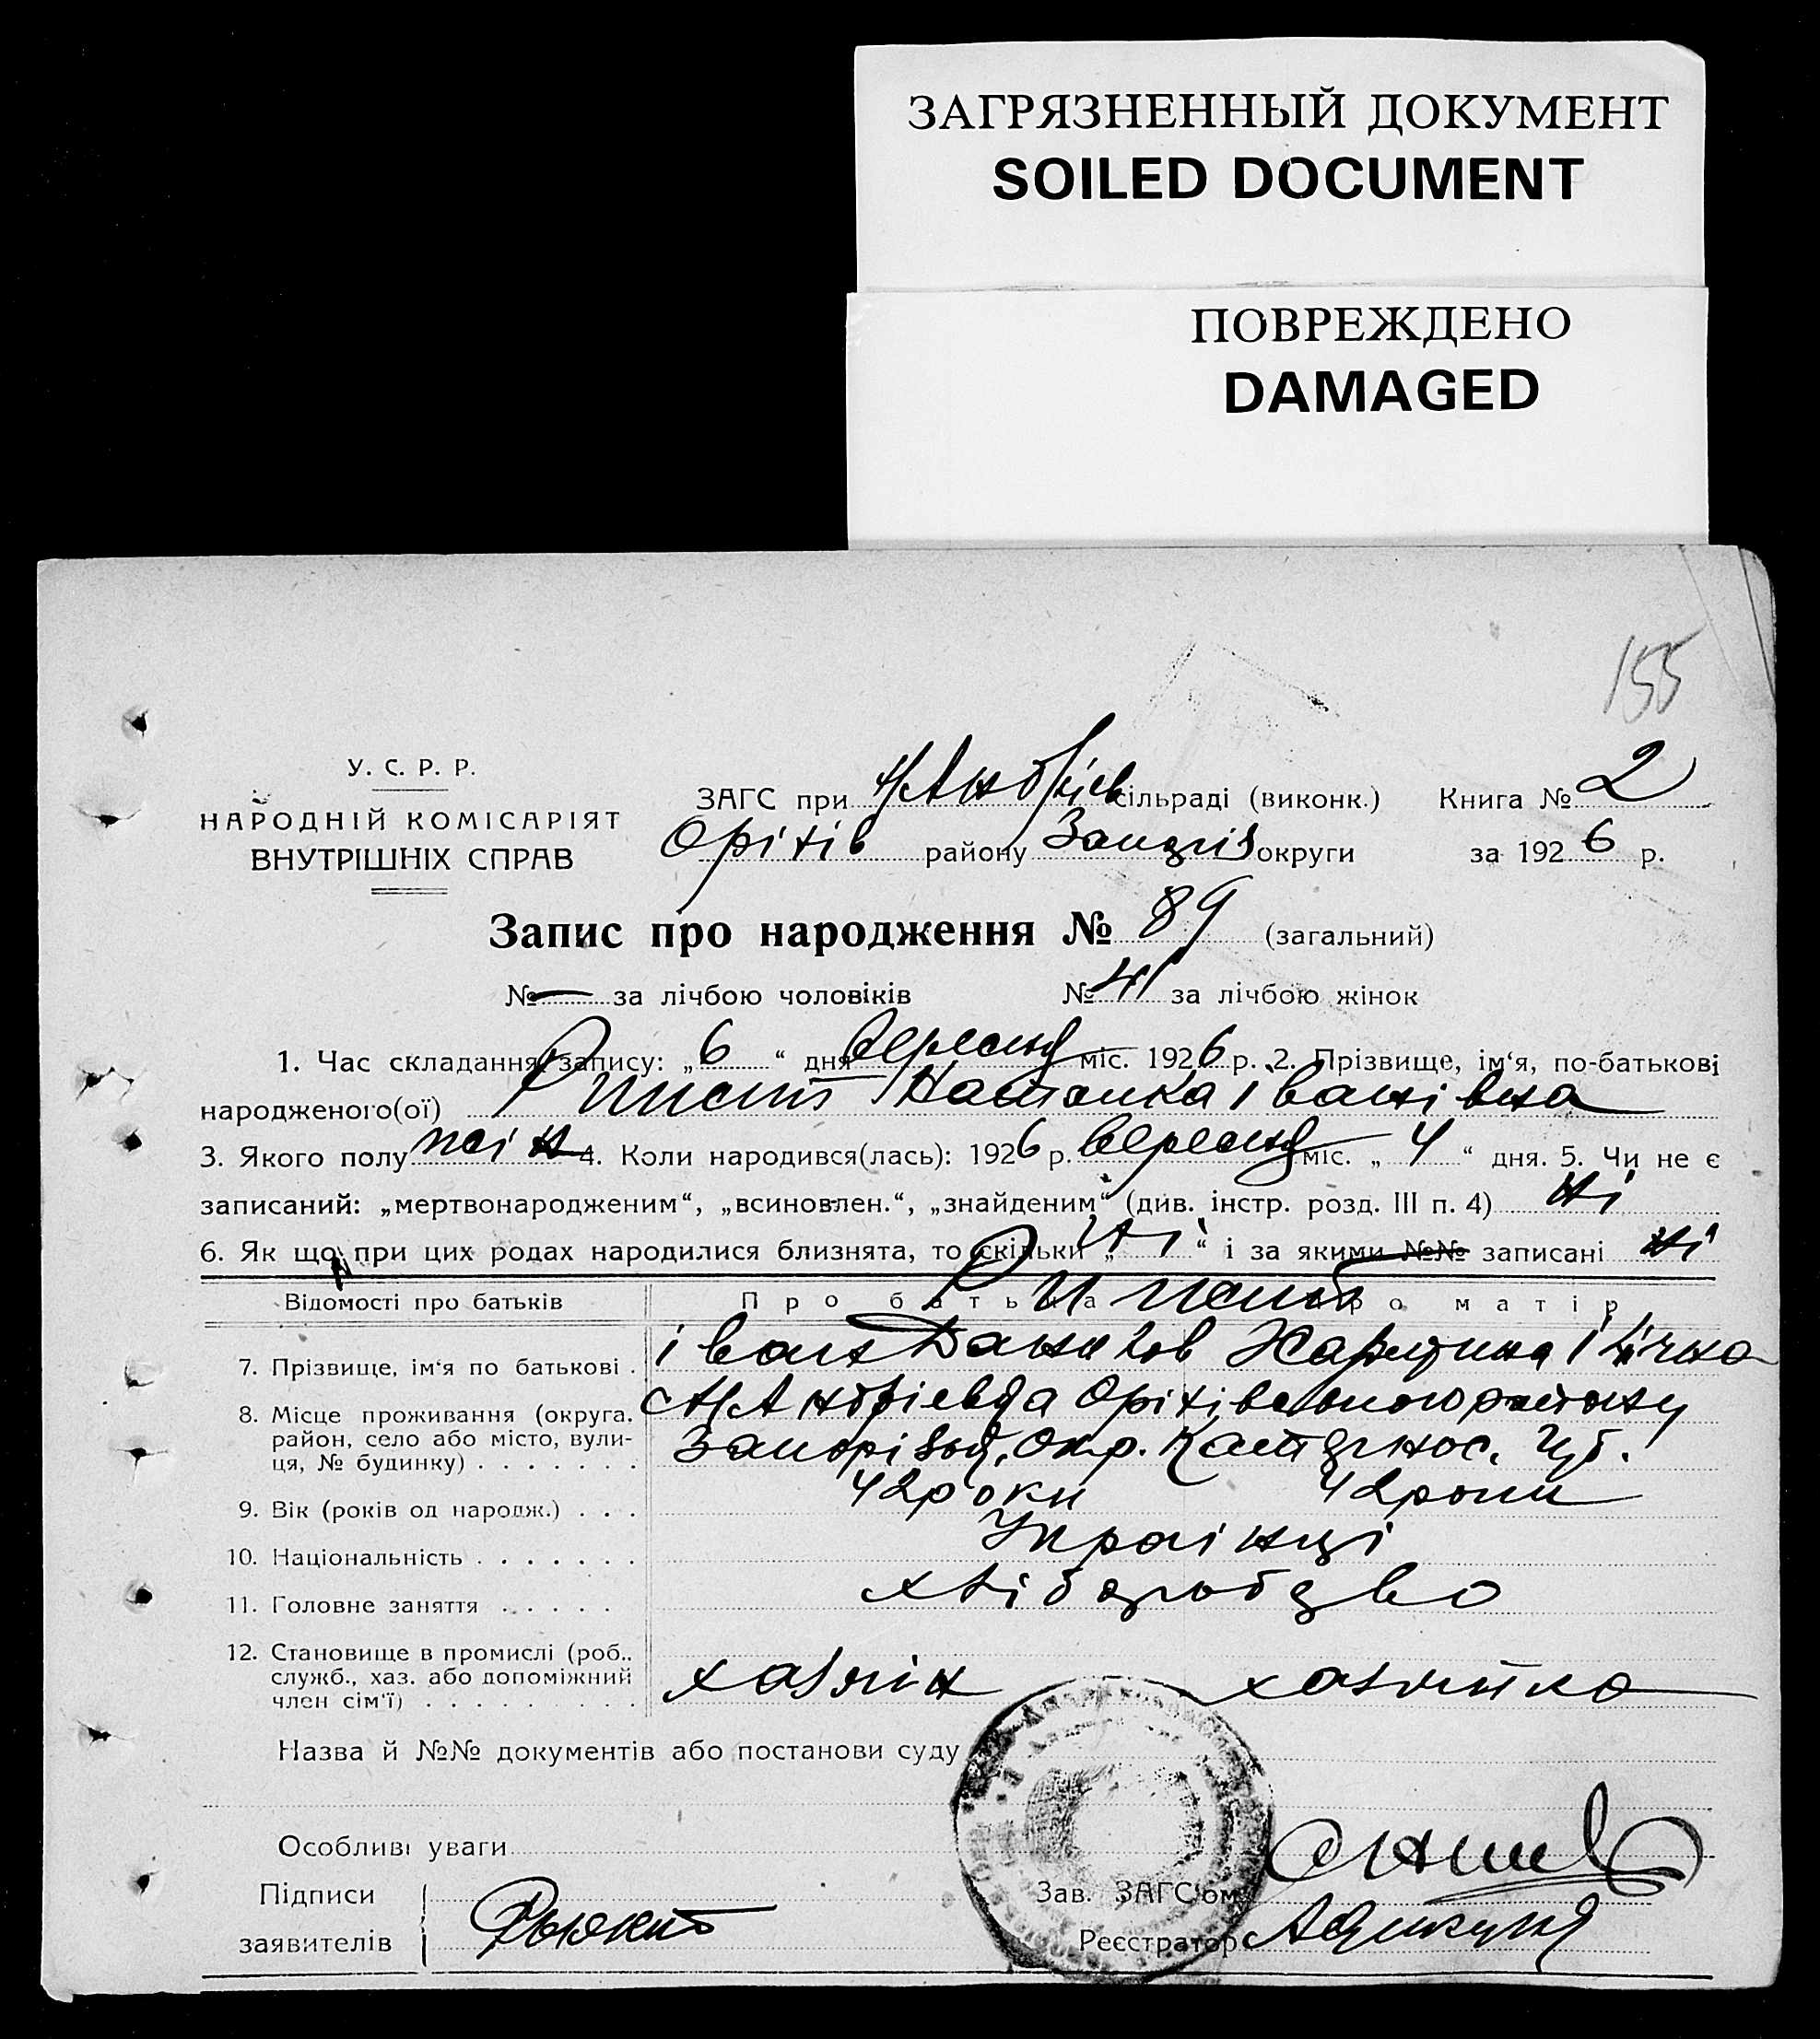 ЗАГРЯЗНЕННЫЙ ДОКУМЕНТ
SOILED DOCUMENT
ПОВРЕЖДЕНО
DAMAGED
155
У. С. Р. Р.
НАРОДНІЙ КОМІСАРІЯТ
ВНУТРІШНІХ СПРАВ
ЗАГС при Н/Андрієв сільраді (виконк.) Книга № 2
Оріхів району Запоріз округи за 1926 р.
Запис про народження № 89 (загальний)
№ — за лічбою чоловіків № 41 за лічбою жінок
1. Час складання запису: „6“ дня вересня міс. 1926 р. 2. Прізвище, ім‘я, по-батькові
народженого(ої) Наталка Іванівна
3. Якого полу жін 4. Коли народився(лась): 1926 р. вересня міс. „4“ дня. 5. Чи не є
записаний: „мертвонародженим“, „всиновлен.“, „знайденим“ (див. інстр. розд. III п. 4) ні
6. Як що при цих родах народилися близнята, то скільки „ні“ і за якими №№ записані ні
Відомості про батьків Про батька Про матір
7. Прізвище, ім‘я по батькові . Іван Данилов
8. Місце проживання (округа, район, село або місто, вулиця, № будинку) . . . . . . . Н/Андрієвка Оріхівського району
Запорізьк. Окр. Катеринос. Губ.
9. Вік (років од народж.) . . . 42 роки 42 роки
10. Національність . . . . . . . Українці
11. Головне заняття . . . . . хліборобство
12. Становище в промислі (роб., служб., хаз. або допоміжний член сім‘ї) . . . . . . . . . хазяїн хазяйка
Назва й №№ документів або постанови суду
Особливі уваги
Підписи
заявителів
Зав. ЗАГС‘ом
Реєстратор